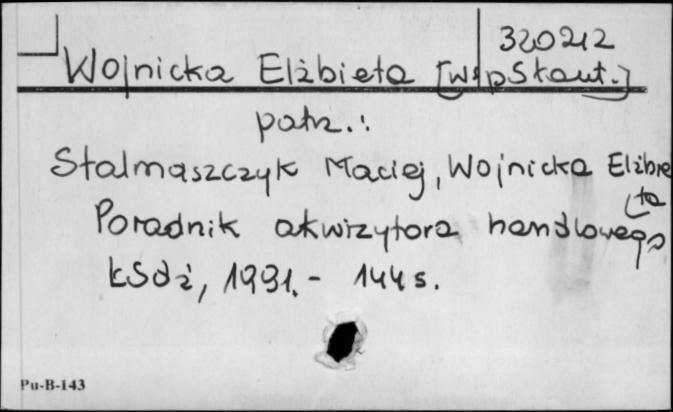 320212
Wojnicka Elżbieta [wspótaut.]
patrz.:
Stalmaszczyk Maciej, Wojnicka Elżbie
ta
Poradnik akwizytora handlowego
Łódź, 1991.- 144 s.
Pu-B-143